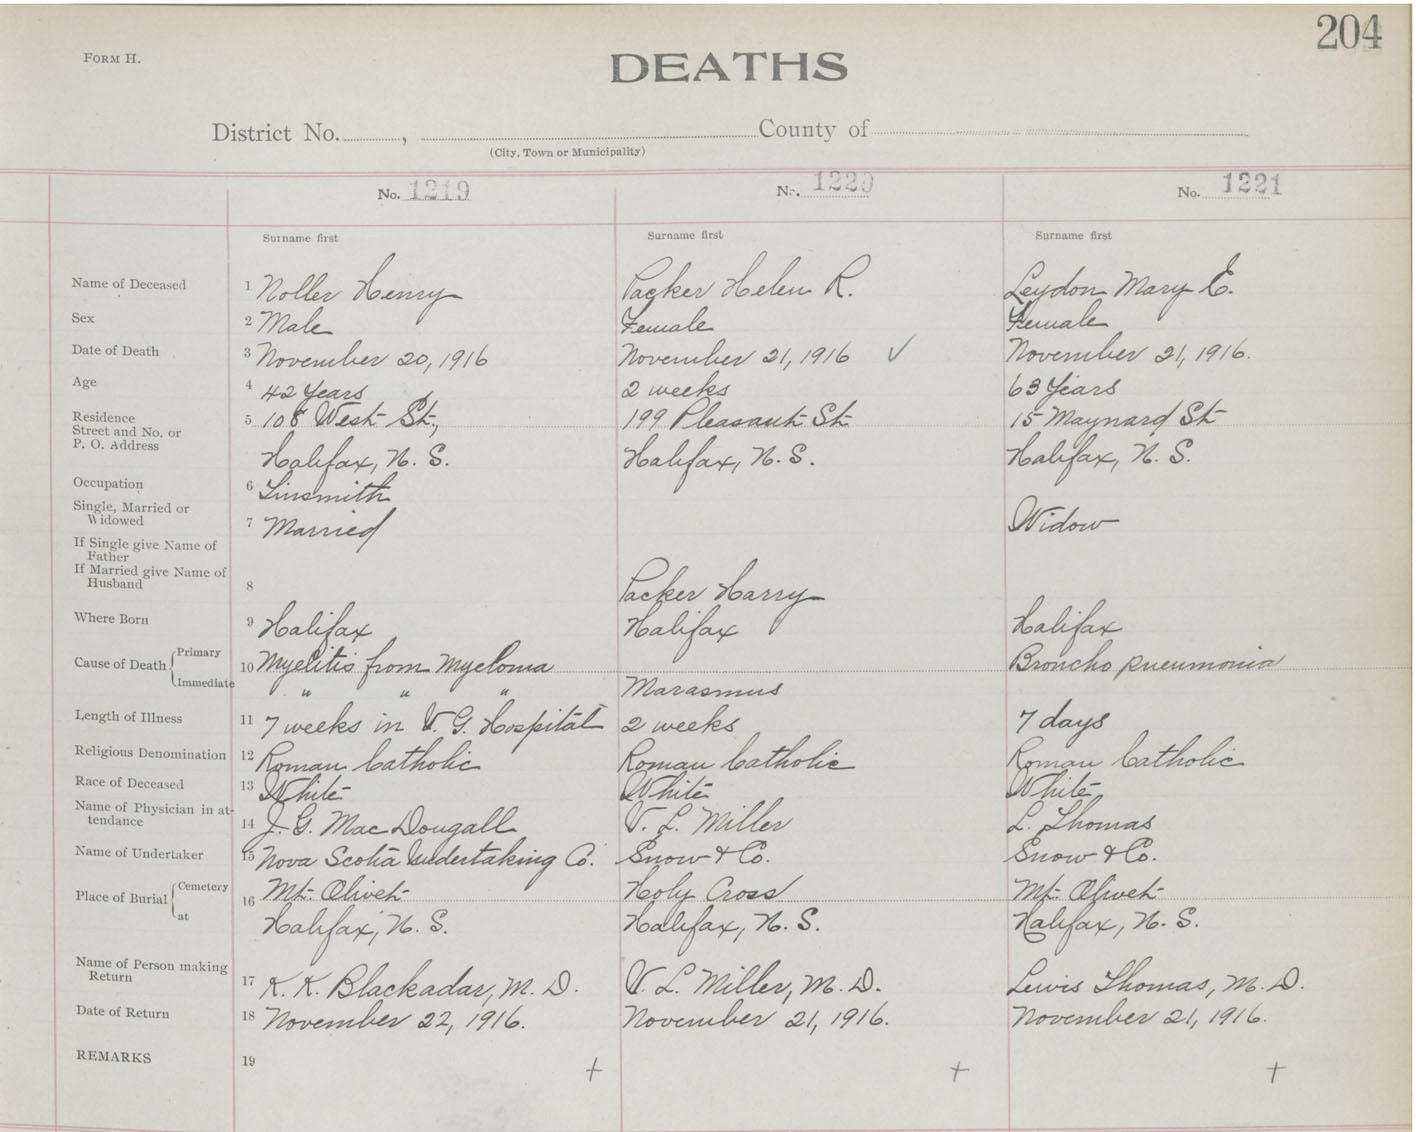 204
FORM H.
DEATHS
District No. , County of
(City, Town or Municipality)
No. 1219 No. 1220 No. 1221
Surname first Surname first Surname first
Name of Deceased 1 Noller Henry Packer Helen R. Leydon Mary E.
Sex 2 Male Female Female
Date of Death 3 November 20, 1916 November 21, 1916 ✓ November 21, 1916.
Age 4 42 Years 2 weeks 63 Years
Residence
Street and No. or 5 108 West St., 199 Pleasant St 15 Maynard St
P. O. Address
Halifax, N. S. Halifax, N. S. Halifax, N. S.
Occupation 6 Tinsmith
Single, Married or
Widowed 7 Married Widow
If Single give Name of
Father
If Married give Name of
Husband 8 Packer Harry
Where Born 9 Halifax Halifax Halifax
Cause of Death { Primary 10 Myelitis from Myeloma Broncho pneumonia
Immediate " " " Marasmus
Length of Illness 11 7 weeks in V. G. Hospital 2 weeks 7 days
Religious Denomination 12 Roman Catholic Roman Catholic Roman Catholic
Race of Deceased 13 White White White
Name of Physician in at-
tendance 14 J. G. MacDougall V. L. Miller L. Thomas
Name of Undertaker 15 Nova Scotia Undertaking Co. Snow & Co. Snow & Co.
Place of Burial { Cemetery 16 Mt. Olivet Holy Cross Mt. Olivet
at Halifax, N. S. Halifax, N. S. Halifax, N. S.
Name of Person making
Return 17 K. K. Blackadar, M. D. V. L. Miller, M. D. Lewis Thomas, M. D.
Date of Return 18 November 22, 1916. November 21, 1916. November 21, 1916.
REMARKS 19 + + +